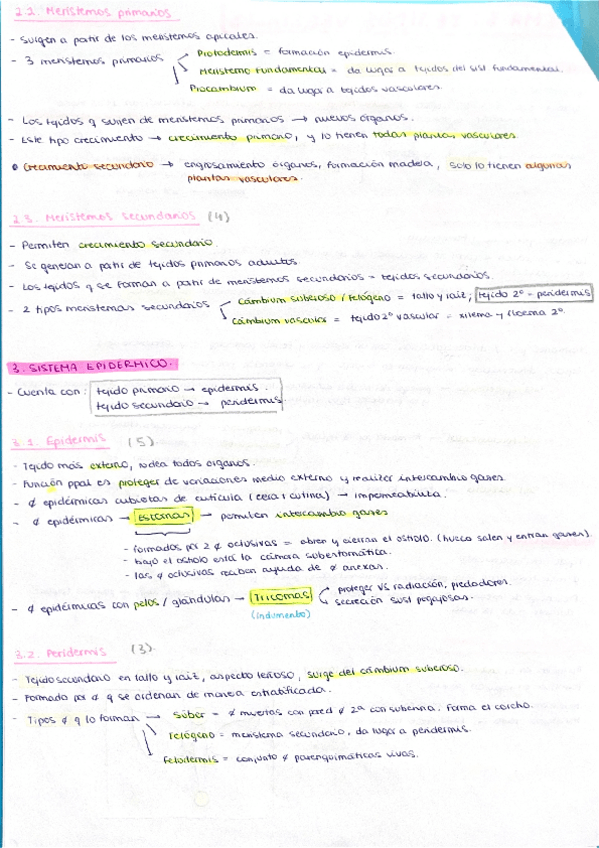 2.2. Meristemos primarios
- Surgen a partir de los meristemos apicales.
- 3 meristemos primarios
Protodermis = formación epidermis.
Meristemo fundamental = da lugar a tejidos del sist fundamental.
Procambium = da lugar a tejidos vasculares
- Los tejidos q surgen de meristemos primarios → nuevos órganos.
- Este tipo crecimiento → crecimiento primario, y lo tienen todas plantas vasculares
• Crecimiento secundario → engrosamiento órganos, formación madera, solo lo tienen algunas
plantas vasculares.
2.3. Meristemos secundarios (4)
- Permiten crecimiento secundario.
- Se generan a partir de tejidos primarios adultos.
- Los tejidos q se forman a partir de meristemos secundarios = tejidos secundarios.
- 2 tipos meristemas secundarios
cámbium suberoso / felógeno = tallo y raíz; tejido 2º - peridermis
Cámbium vascular = tejido 2º vascular = xilema y floema 2º.
3. SISTEMA EPIDERMICO.
- Cuenta con: tejido primario → epidermis.
tejido secundario → peridermis.
3.1. Epidermis (5)
- Tejido más externo, rodea todos órganos.
- Función ppal es proteger de variaciones medio externo y realizar intercambio gases.
- ¢ epidérmicas cubiertas de cutícula (cera + cutina) → impermeabiliza.
- ¢ epidérmicas → Estomas → permiten intercambio gases
- formados por 2 ¢ oclusivas = abren y cierran el ostiolo. (hueco salen y entran gases).
- bajo el ostiolo está la cámara subestomática.
- las ¢ oclusivas reciben ayuda de ¢ anexas.
- ¢ epidérmicas con pelos / glándulas → Tricomas
proteger vs radiación, predadores.
secreción sust pegajosas.
(indumento)
3.2. Peridermis (3)
- Tejido secundario en tallo y raíz, aspecto leñoso, surge del cámbium suberoso.
- Formado por ¢ q se ordenan de manera estratificada.
- Tipos ¢ q lo forman → Súber = ¢ muertas con pared ¢ 2ª con suberina. Forma el corcho.
Felógeno = meristema secundario, da lugar a peridermis.
Felodermis = conjunto ¢ parenquimáticas vivas.